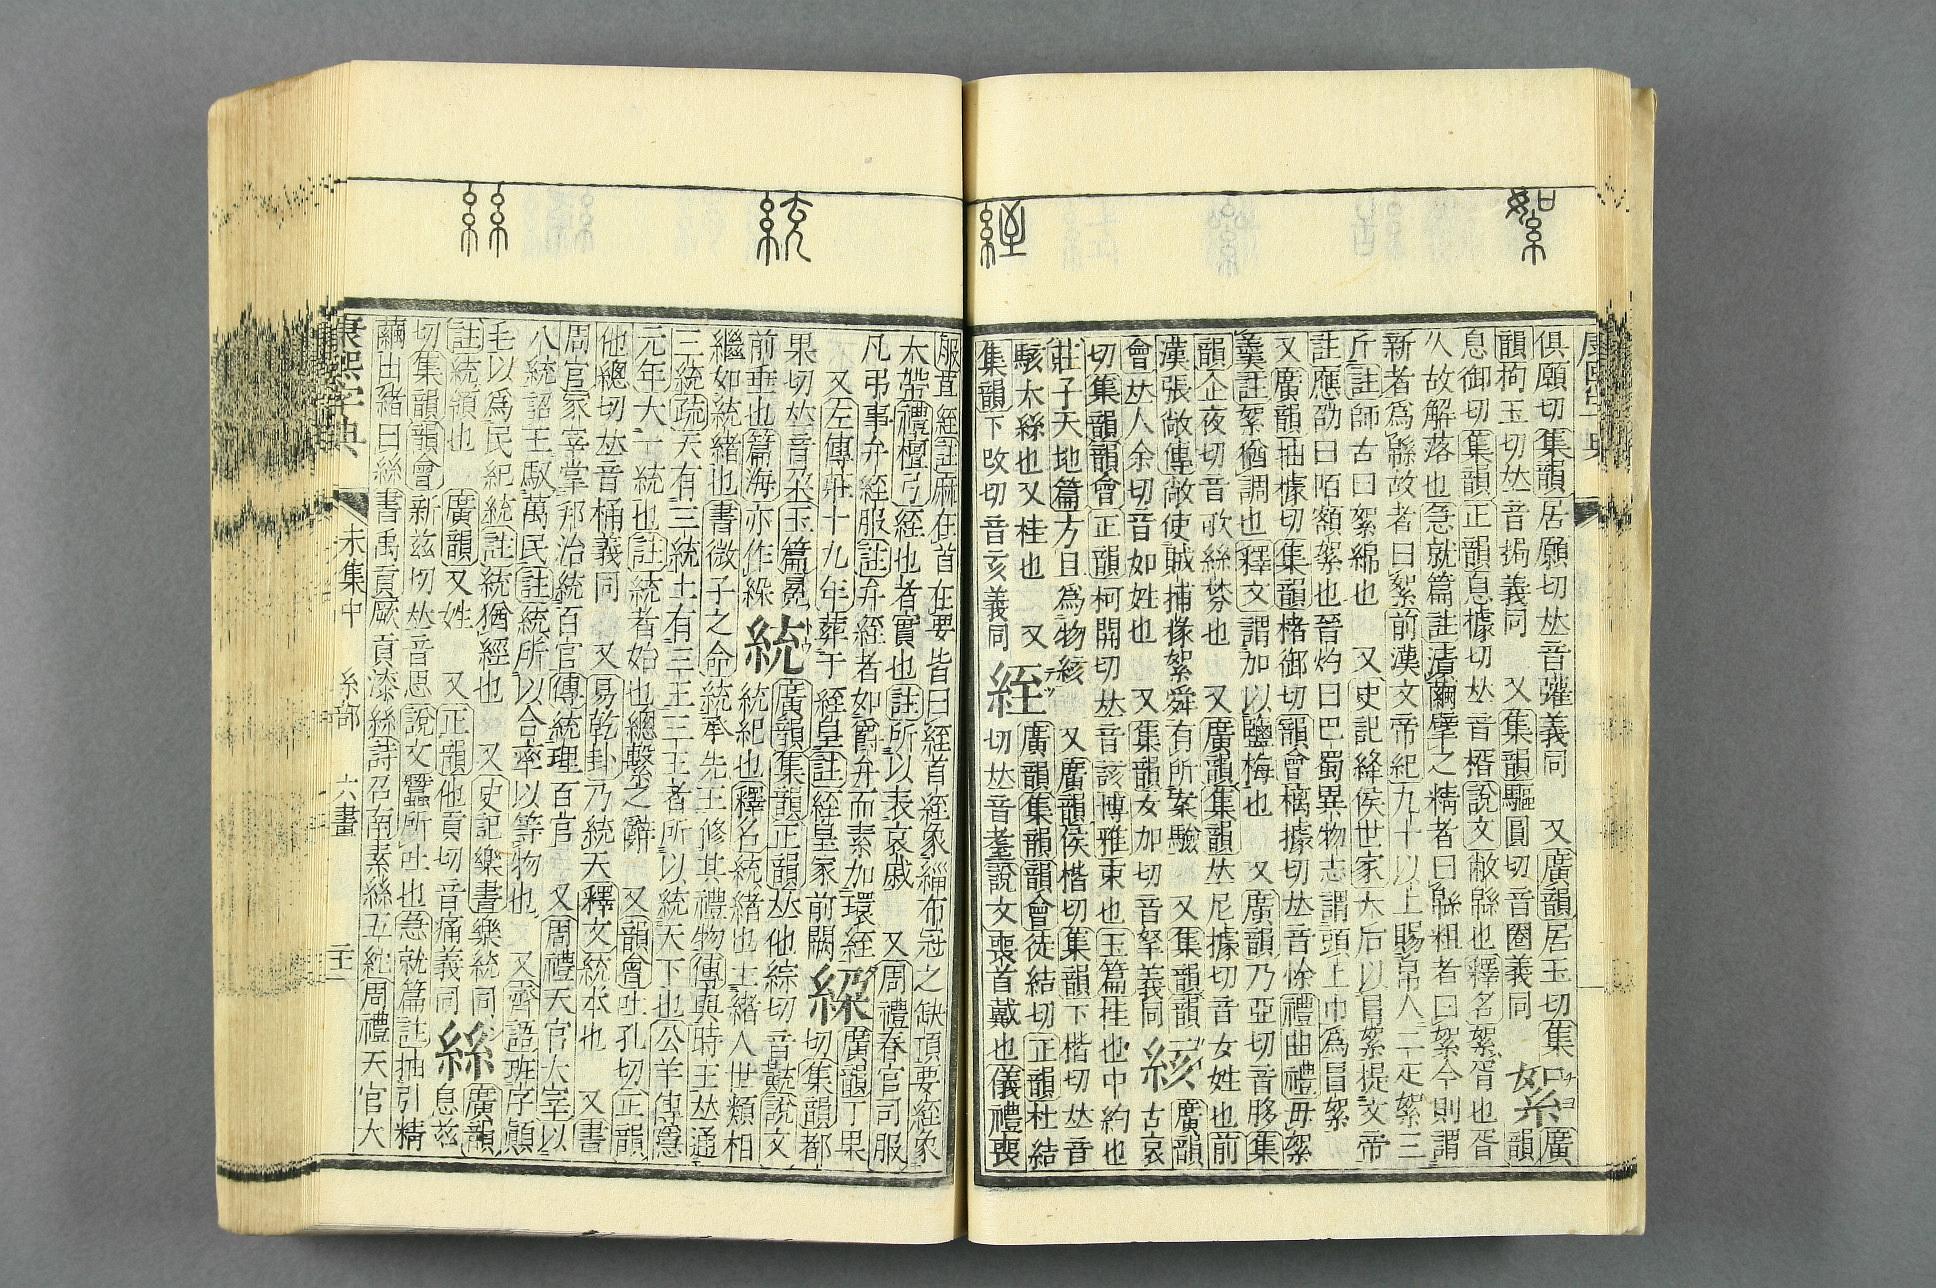 絮
絰
統
絲
俱願切集韻居願切𠀤音㢧義同 又廣韻居玉切集
韻拘玉切𠀤音挶義同 又集韻驅圓切音圈義同 絮 廣韻
息御切集韻正韻息據切𠀤音㥠說文敝緜也釋名絮胥也胥
久故解落也急就篇註漬繭擘之精者曰緜粗者曰絮今則謂
新者爲緜故者曰絮前漢文帝紀九十以上賜帛人二疋絮三
斤註師古曰絮綿也 又史記絳侯世家太后以冒絮提文帝
註應劭曰陌額絮也晉灼曰巴蜀異物志謂頭上巾爲冒絮
又廣韻抽據切集韻楮御切韻會檎據切𠀤音悇禮曲禮毋絮
羹註絮猶調也釋文謂加以鹽梅也 又廣韻乃亞切音䏧集
韻企夜切音歌絲棼也 又廣韻集韻𠀤尼據切音女姓也前
漢張敞傳敞使賊捕掾絮舜有所案驗 又集韻韻
會𠀤人余切音如姓也 又集韻女加切音拏義同 絯 廣韻古哀
切集韻韻會正韻柯開切𠀤音該博雅束也玉篇挂也中約也
莊子天地篇方且爲物絯 又廣韻侯楷切集韻下楷切𠀤音
駭大絲也又挂也 又
集韻下改切音亥義同 絰 廣韻集韻韻會徒結切正韻杜結
切𠀤音耊說文喪首戴也儀禮喪
服苴絰註麻在首在要皆曰絰首絰象緇布冠之缺項要絰象
大帶禮檀弓絰也者實也註所以表哀戚 又周禮春官司服
凡弔事弁絰服註弁絰者如爵弁而素加環絰
又左傳莊十九年葬于絰皇註絰皇冢前闕 綵 廣韻丁果
切集韻都
果切𠀤音朶玉篇冕
前垂也篇海亦作綵 統 廣韻集韻正韻𠀤他綜切音𧝎說文
統紀也釋名統緒也主緒人世類相
繼如統緒也書微子之命統承先王修其禮物傳與時王𠀤通
三統疏天有三統土有三王三王者所以統天下也公羊傳隱
元年大一統也註統者始也總繫之辭 又韻會吐孔切正韻
他總切𠀤音桶義同 又易乾卦乃統天釋文統本也 又書
周官冢宰掌邦治統百官傳統理百官 又周禮天官大宰以
八統詔王馭萬民註統所以合率以等物也 又齊語班序顚
毛以爲民紀統註統猶經也 又史記樂書樂統同
註統領也 廣韻又姓 又正韻他貢切音痛義同 絲 廣韻
息兹
切集韻韻會新兹切𠀤音思說文蠶所吐也急就篇註抽引精
繭出緒曰絲書禹貢厥貢漆絲詩召南素絲五紽周禮天官大
康熙字典 未集中 糸部 六畫